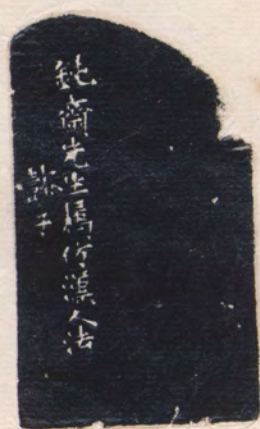 鈍齋先生屬仿漢人法
子